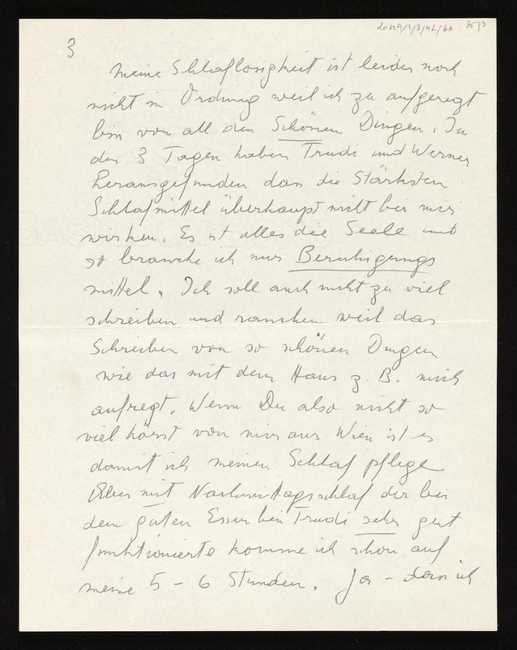 3
Meine Schlaflosigkeit ist leider noch
nicht in Ordnung weil ich zu aufgeregt
bin von all den Schönen Dingen. In
den 3 Tagen haben Trude und Werner
herausgefunden dass die Stärksten
Schlafmittel überhaupt nicht bei mir
wirken. Es ist alles die Seele und
so brauche ich nur Beruhigungs
mittel. Ich soll auch nicht zu viel
schreiben und rauchen weil das
Schreiben von so schönen Dingen
wie das mit dem Haus z. B. mich
aufregt. Wenn Du also nicht so
viel hörst von mir aus Wien ist es
damit ich meinen Schlaf pflege
Aber mit Nachmittagsschlaf der bei
dem guten Essen bei Trude sehr gut
funktionierte komme ich schon auf
meine 5 – 6 Stunden. Ja – dass ich